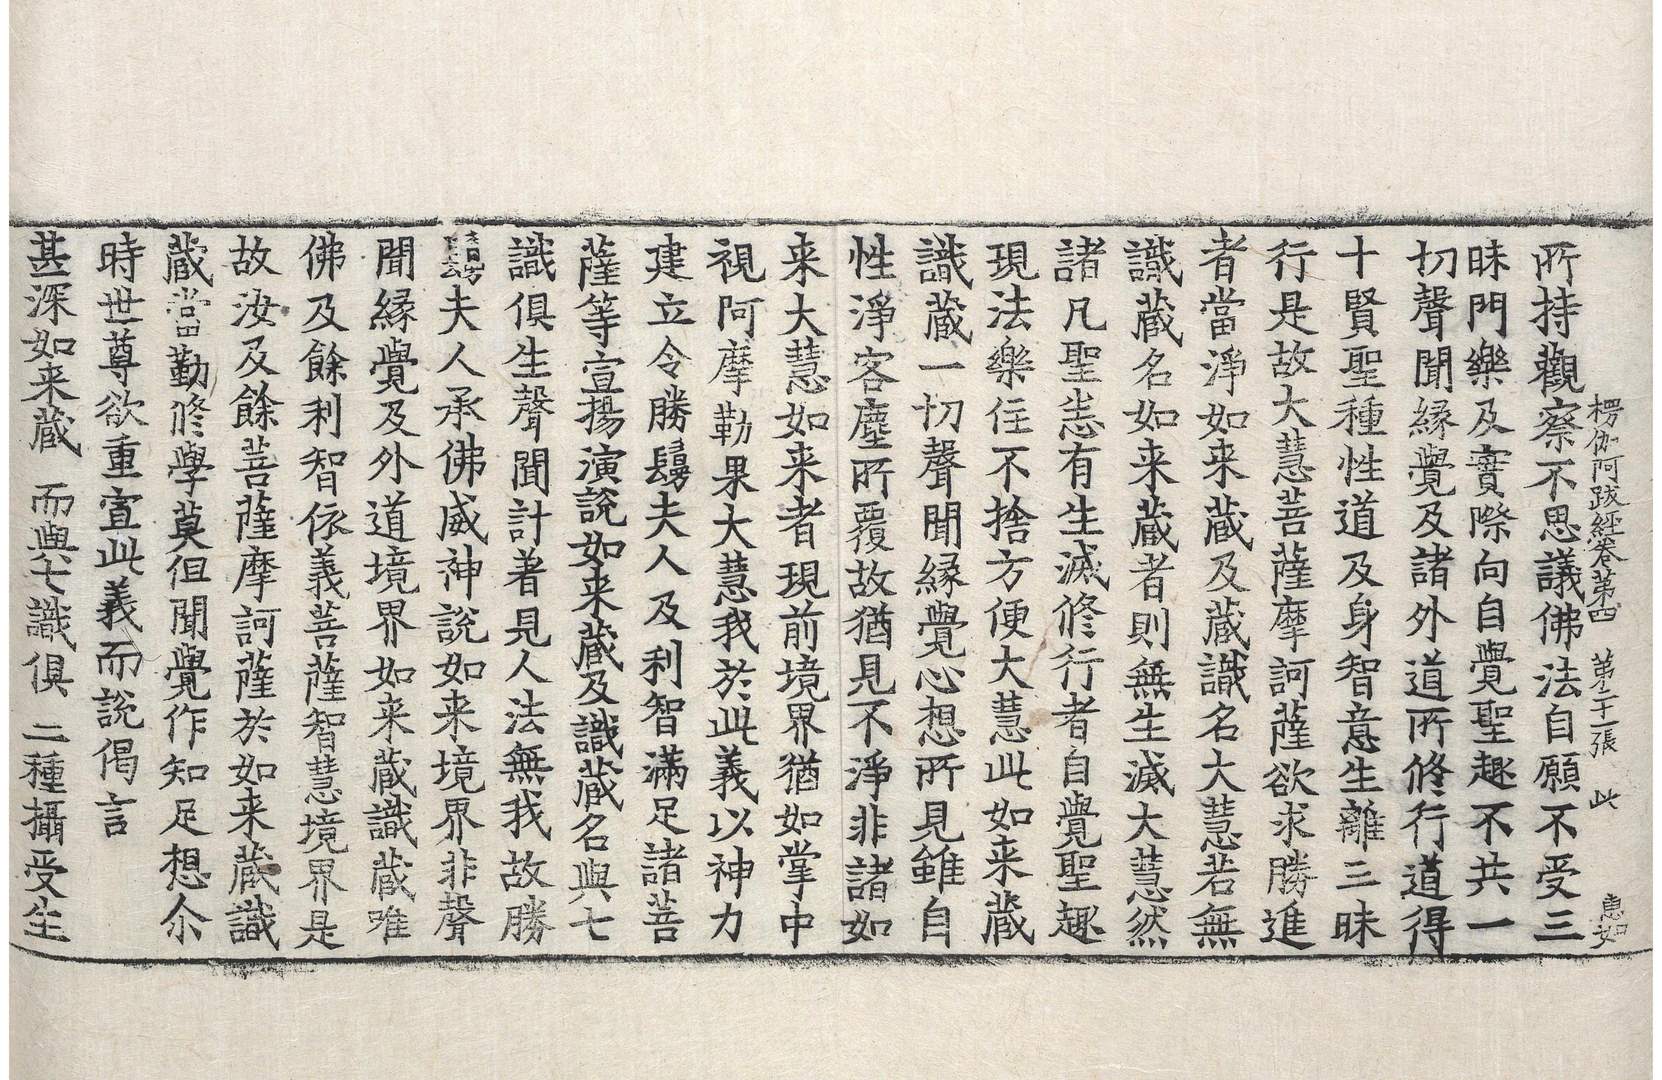 楞伽阿跋經卷第四 第二十一張 此 惠如
所持觀察不思議佛法自願不受三
昧門樂及實際向自覺聖趣不共一
切聲聞縁覺及諸外道所修行道得
十賢聖種性道及身智意生離三昧
行是故大慧菩薩摩訶薩欲求勝進
者當淨如来蔵及蔵識名大慧若無
識蔵名如来蔵者則無生滅大慧然
諸凡聖悉有生滅修行者自覺聖趣
現法樂住不捨方便大慧此如来蔵
識蔵一切聲聞縁覺心想所見雖自
性淨客塵所覆故猶見不淨非諸如
来大慧如来者現前境界猶如掌中
視阿摩勒果大慧我於此義以神力
建立令勝鬘夫人及利智滿足諸菩
薩等宣揚演說如来蔵及識蔵名與七
識俱生聲聞計著見人法無我故勝
夫人承佛威神說如来境界非聲
聞縁覺及外道境界如来蔵識蔵唯
佛及餘利智依義菩薩智慧境界是
故汝及餘菩薩摩訶薩於如来蔵識
蔵當勤修學莫但聞覺作知足想尒
時世尊欲重宣此義而說偈言
甚深如来蔵 而與七識俱 二種攝受生